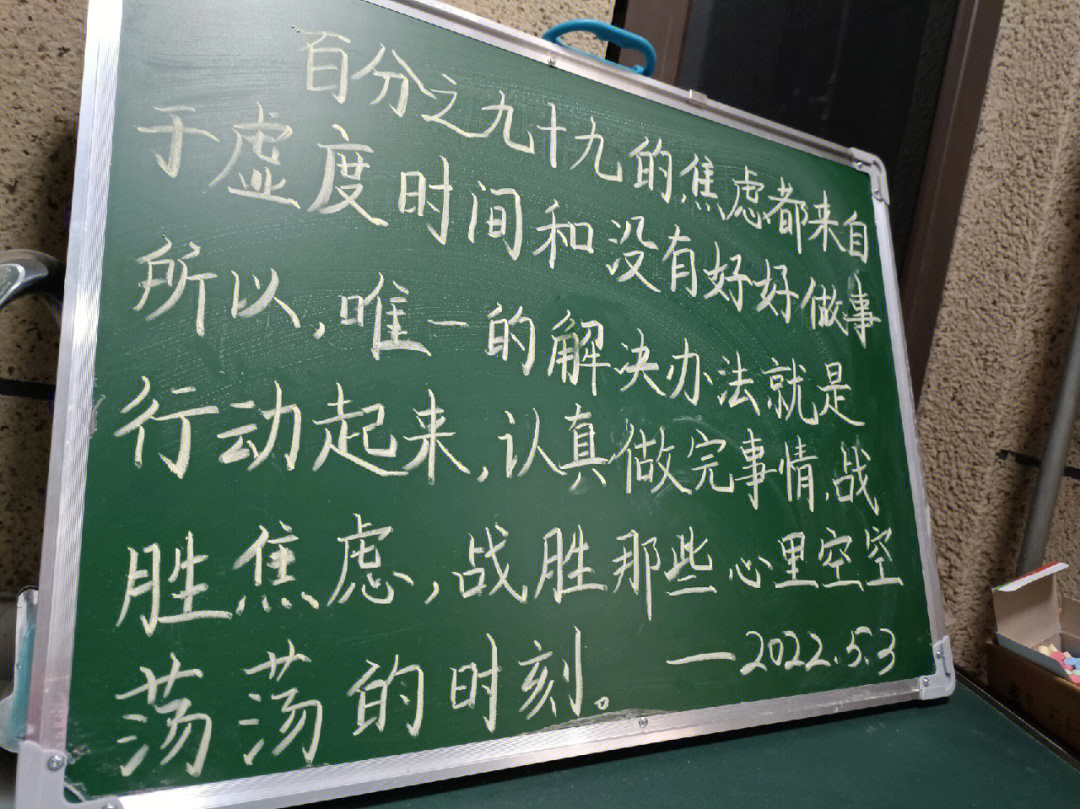 百分之九十九的焦虑都来自
于虚度时间和没有好好做事
所以,唯一的解决办法就是
行动起来,认真做完事情,战
胜焦虑,战胜那些心里空空
荡荡的时刻。 —2022.5.3